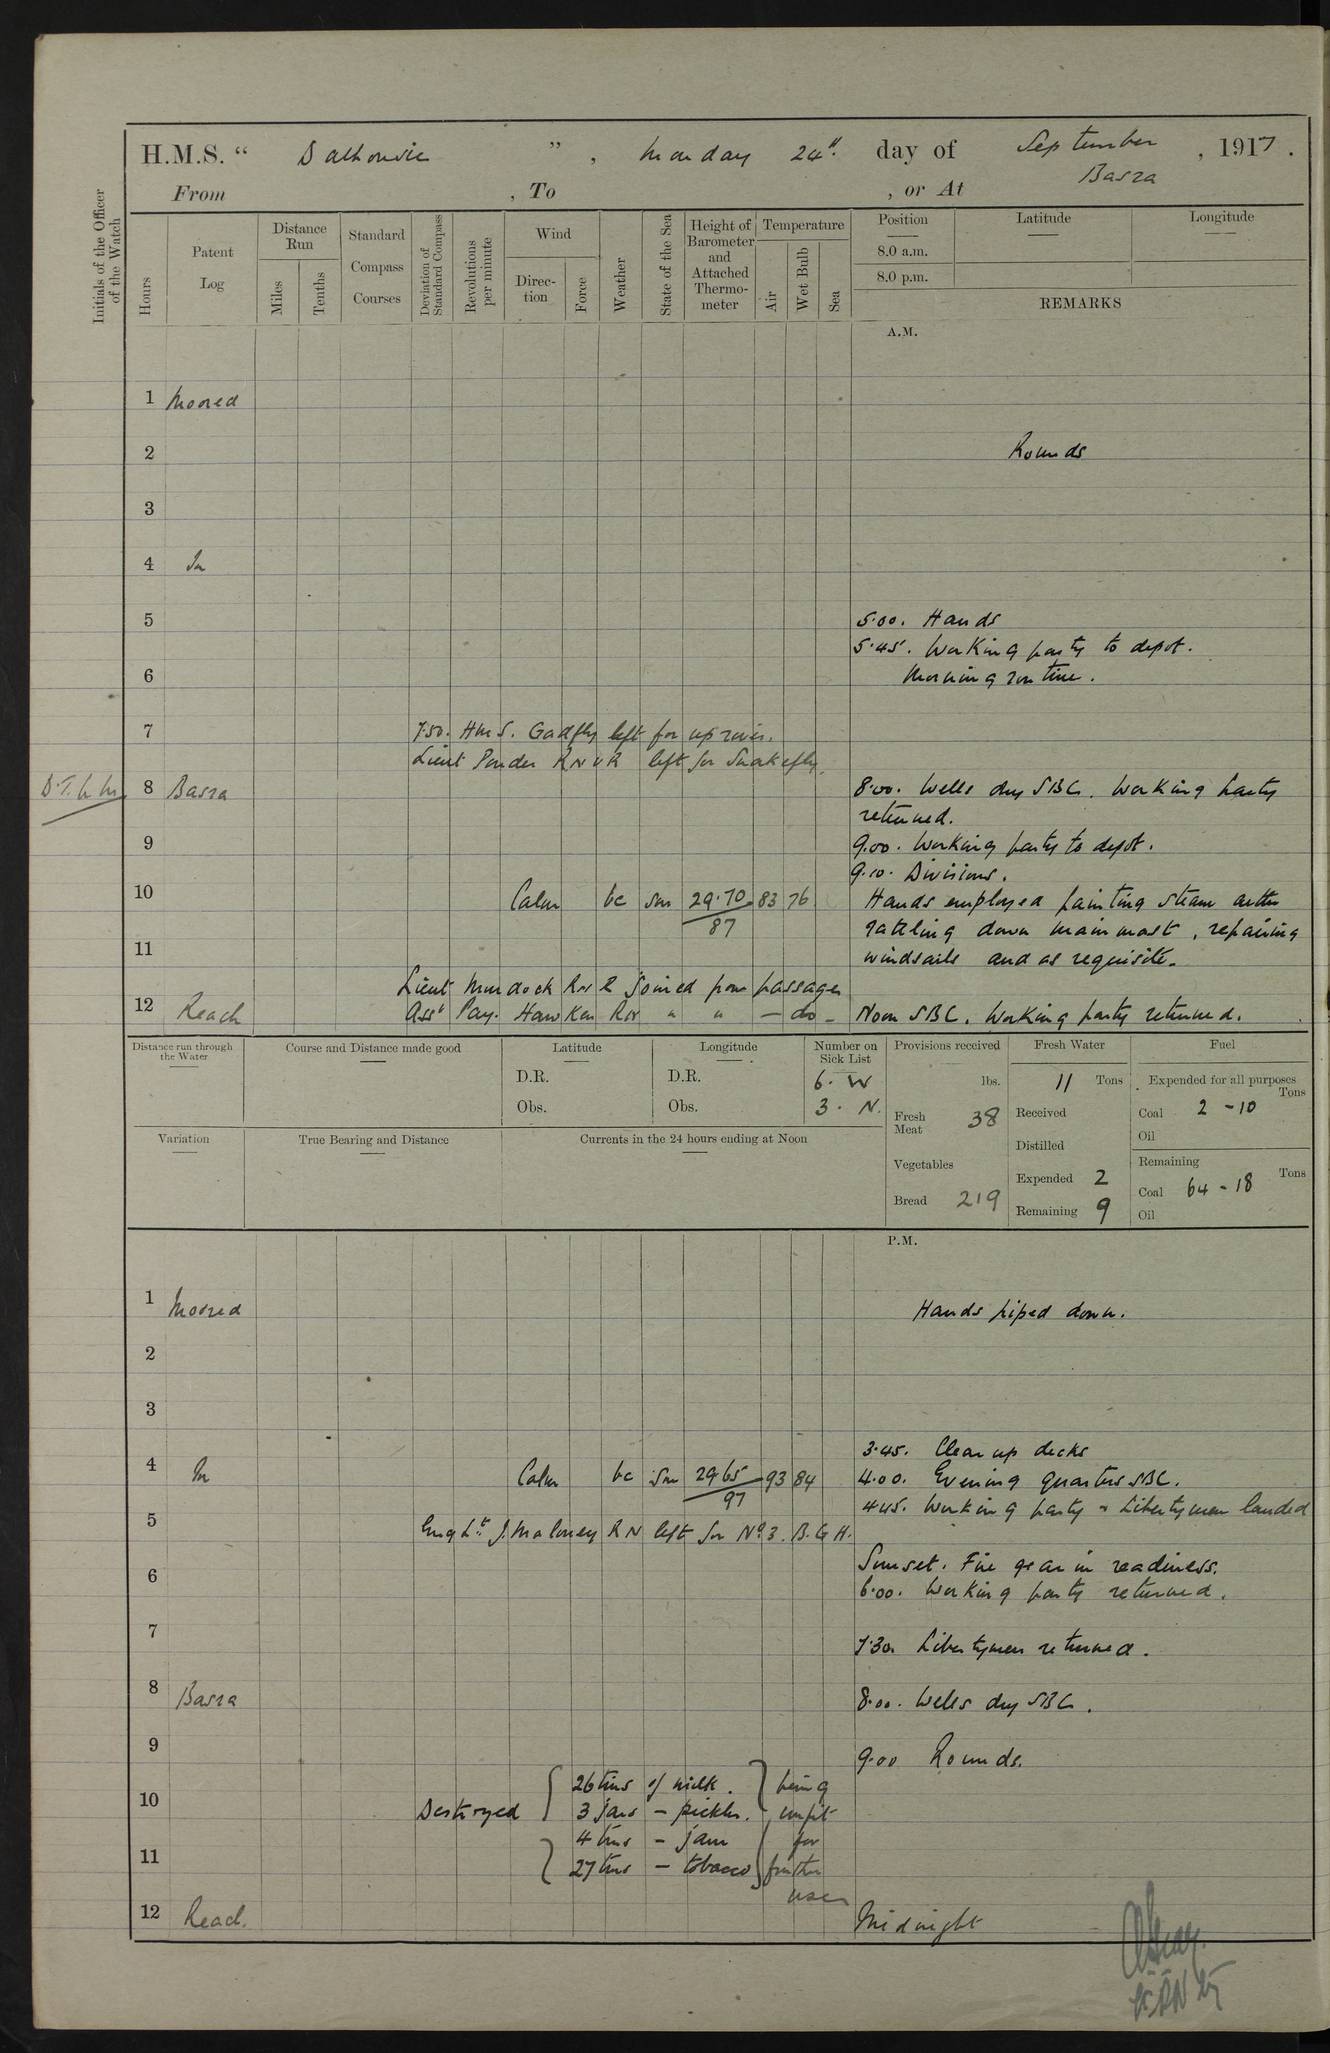 H.M.S. “ Dalhousie ” , Monday 24th. day of September , 1917 .
From , To , or At Basra
Initials of the Officer of the Watch
Hours
Patent Log
Distance Run
Miles
Tenths
Standard Compass Courses
Deviation of Standard Compass
Revolutions per minute
Wind
Direction
Force
Weather
State of the Sea
Height of Barometer and Attached Thermometer
Temperature
Air
Wet Bulb
Sea
Position
Latitude
Longitude
8.0 a.m.
8.0 p.m.
REMARKS
A.M.
1 Moored
2 Rounds
3
4 In
5 5.00. Hands
5.45. Working party to depot.
6 Morning routine.
7 7.50. H.M.S. Gadfly left for up river.
Lieut Ponder RNVR left for Snakefly.
8 Basra 8.00. Wells dry SBC. Working party
returned.
9 9.00. Working party to depot.
9.10. Divisions.
10 Calm bc sm 29.70 83 76 Hands employed painting steam cutter
87 rattling down mainmast, repairing
11 windsails and as requisite.
Lieut Murdock RNR joined for passage
12 Reach Asst Pay. Hawken RNR " " — do — Noon SBC. Working party returned.
Distance run through the Water
Course and Distance made good
Latitude
D.R.
Obs.
Longitude
D.R.
Obs.
Number on Sick List
6. W
3. N.
Provisions received
lbs.
Fresh Meat 38
Vegetables
Bread 219
Fresh Water
11 Tons
Received
Distilled
Expended 2
Remaining 9
Fuel
Expended for all purposes
Tons
Coal 2 - 10
Oil
Remaining
Tons
Coal 64 - 18
Oil
Variation
True Bearing and Distance
Currents in the 24 hours ending at Noon
P.M.
1 Moored Hands piped down.
2
3
3.45. Clear up decks
4 In Calm bc sm 29.65 93 84 4.00. Evening quarters SBC.
97 4.45. Working party & Libertymen landed
5 Eng Lt. J. Maloney RN left for No. 3. B.G.H.
Sunset. Fire gear in readiness.
6 6.00. Working party returned.
7 7.30 Libertymen returned.
8 Basra 8.00. Wells dry SBC.
9 9.00 Rounds.
26 tins of milk. being
10 Destroyed 3 jars — pickles. unfit
4 tins — jam for
11 27 tins — tobacco further
use
12 Reach. Midnight